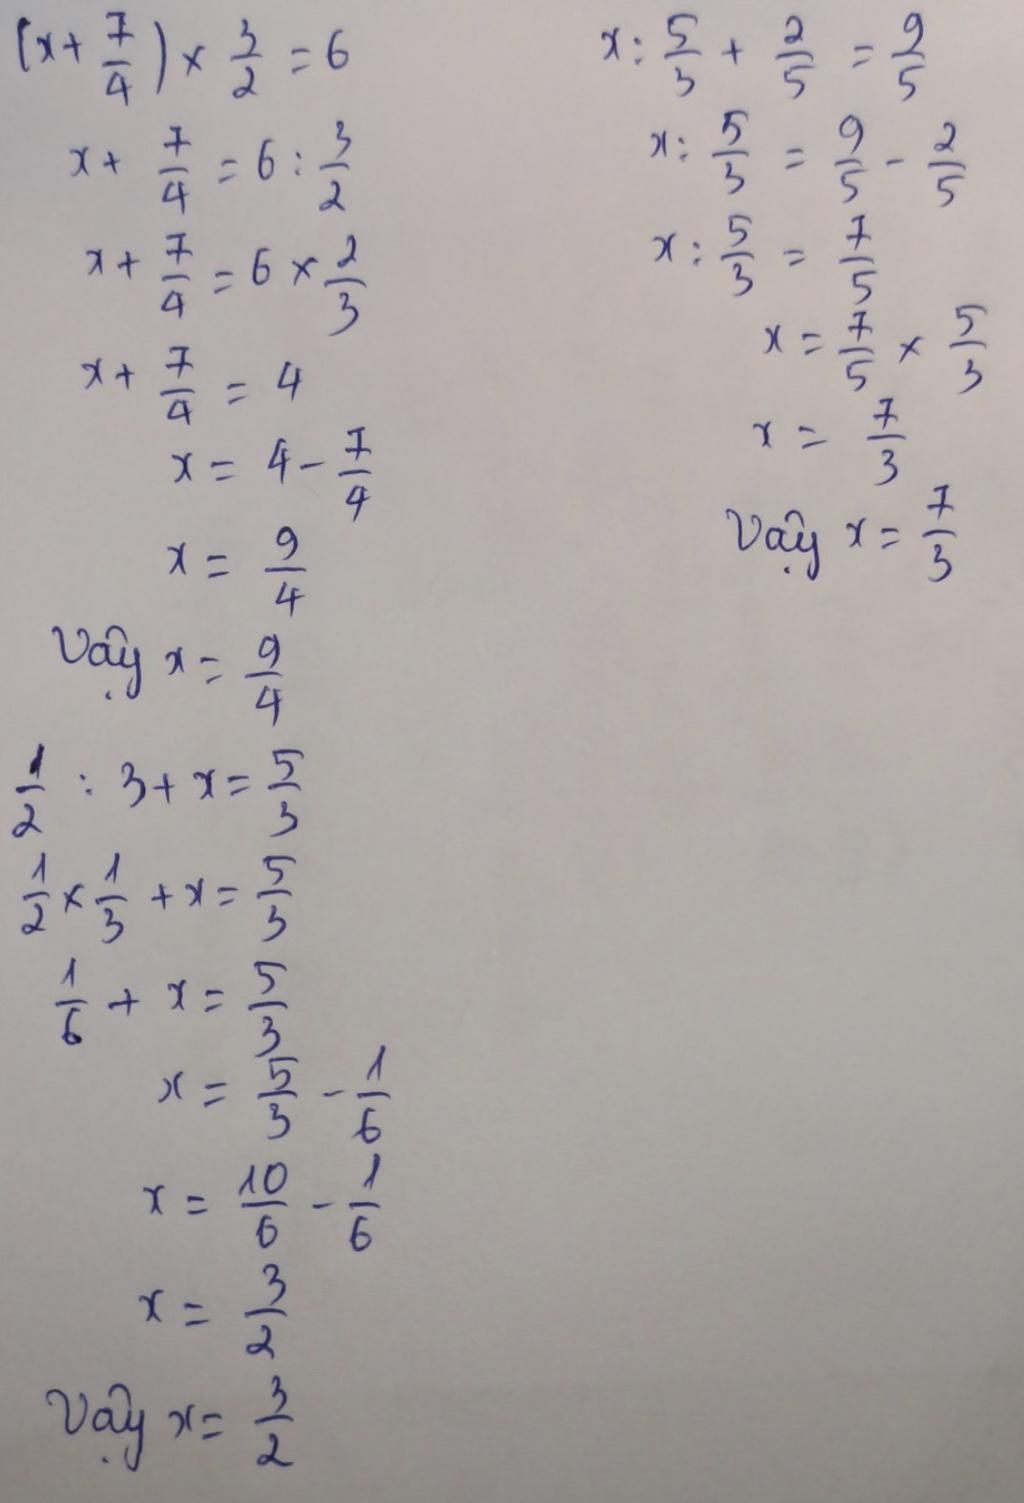 (x + 7/4) × 3/2 = 6
x + 7/4 = 6 : 3/2
x + 7/4 = 6 × 2/3
x + 7/4 = 4
x = 4 - 7/4
x = 9/4
Vậy x = 9/4
1/2 : 3 + x = 5/3
1/2 × 1/3 + x = 5/3
1/6 + x = 5/3
x = 5/3 - 1/6
x = 10/6 - 1/6
x = 3/2
Vậy x = 3/2
x : 5/3 + 2/5 = 9/5
x : 5/3 = 9/5 - 2/5
x : 5/3 = 7/5
x = 7/5 × 5/3
x = 7/3
Vậy x = 7/3